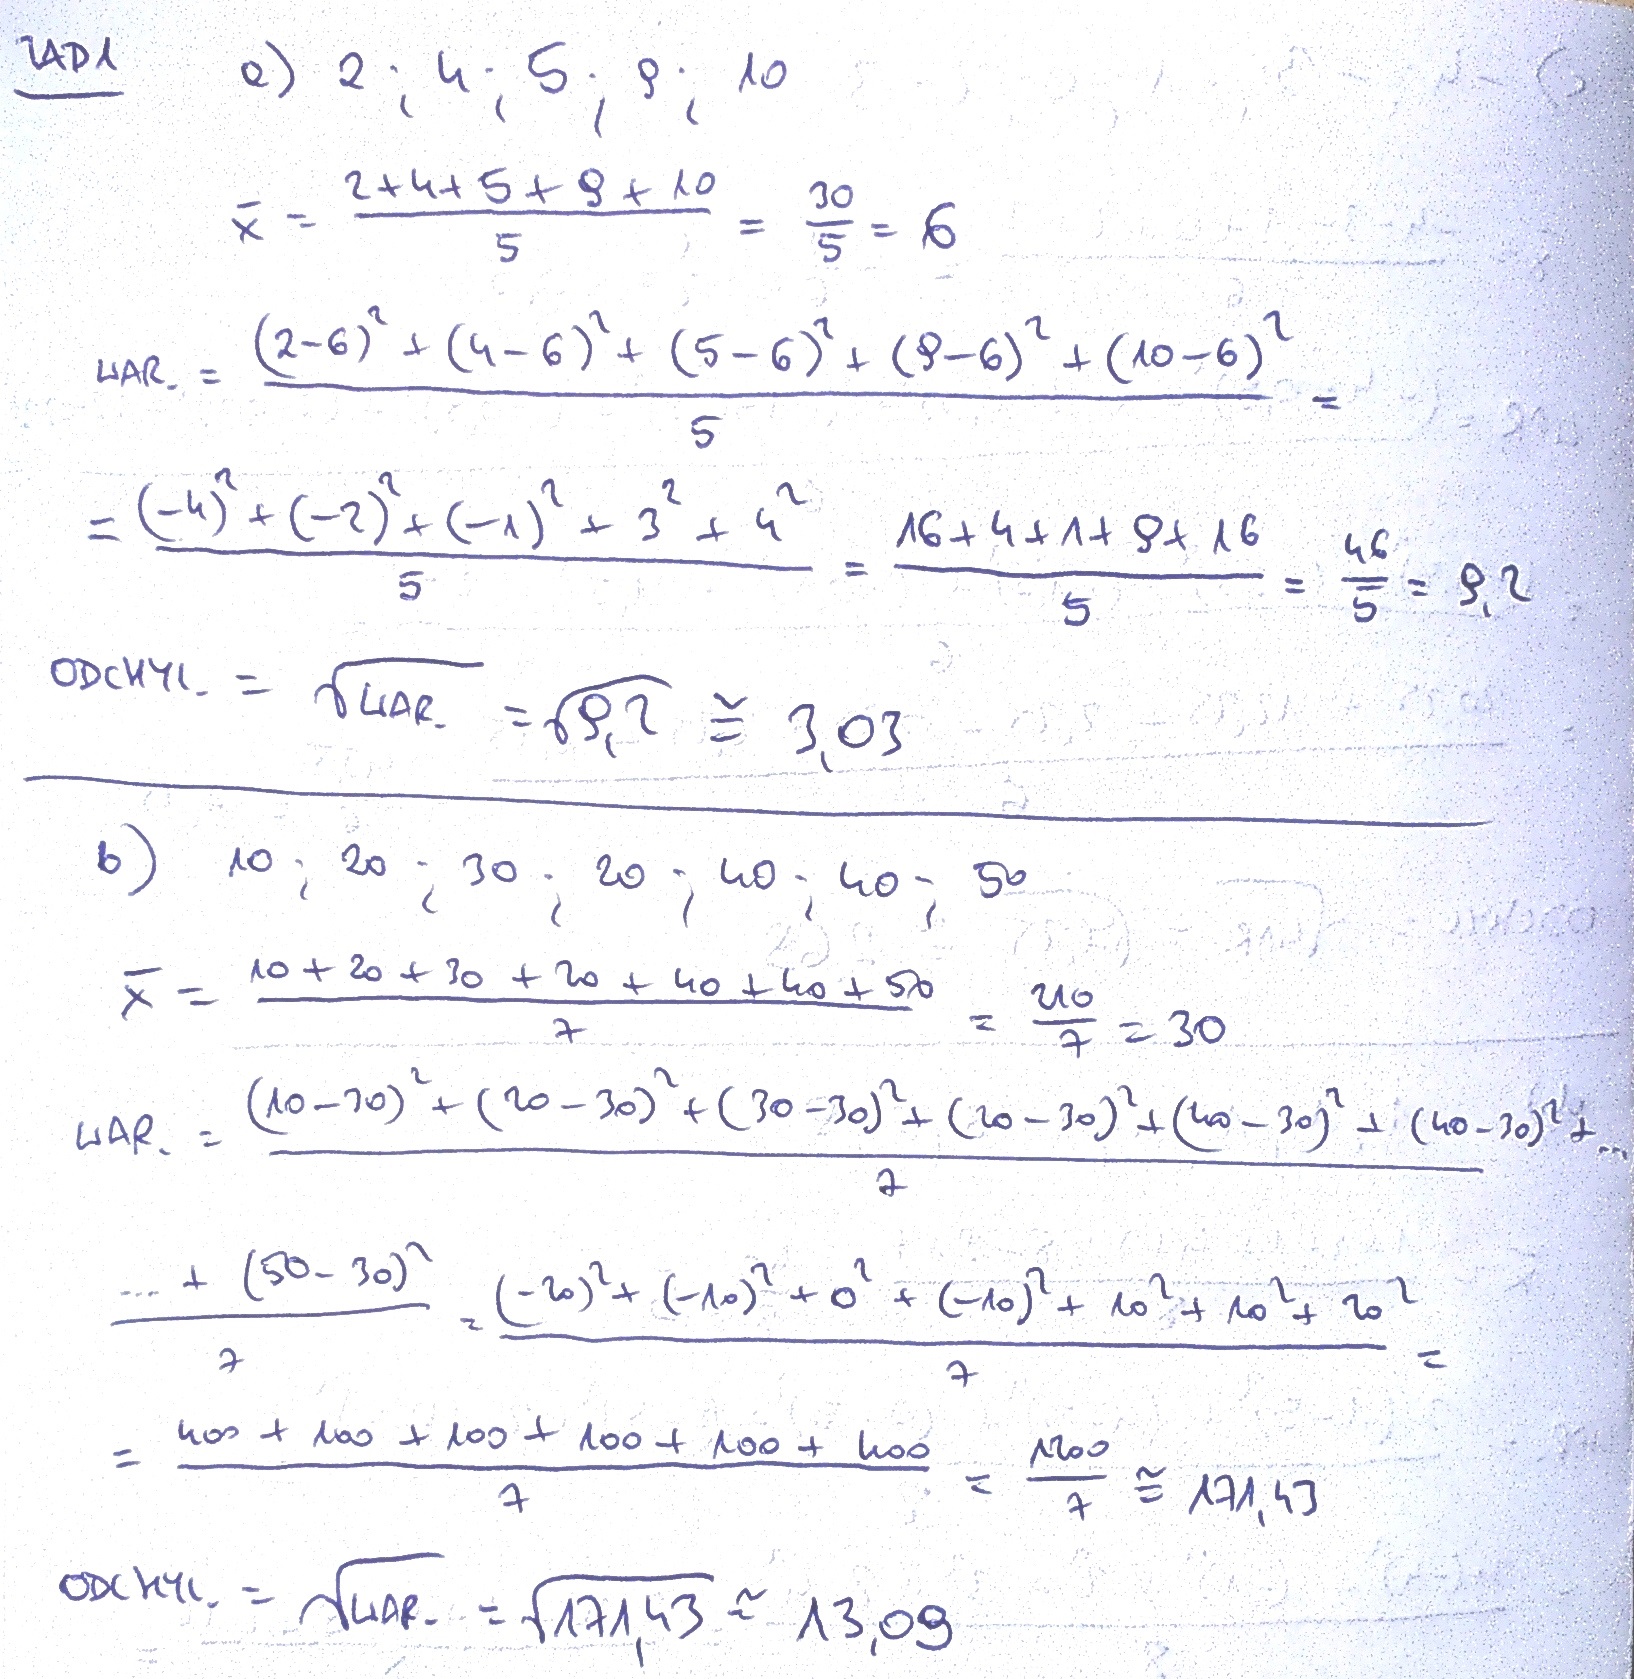 ZAD1 a) 2 ; 4 ; 5 ; 9 ; 10
x̄ = (2+4+5+9+10)/5 = 30/5 = 6
WAR. = ((2-6)² + (4-6)² + (5-6)² + (9-6)² + (10-6)²)/5 =
= ((-4)² + (-2)² + (-1)² + 3² + 4²)/5 = (16+4+1+9+16)/5 = 46/5 = 9,2
ODCHYL. = √WAR. = √9,2 ≅ 3,03
b) 10 ; 20 ; 30 ; 20 ; 40 ; 40 ; 50
x̄ = (10+20+30+20+40+40+50)/7 = 210/7 = 30
WAR. = ((10-30)² + (20-30)² + (30-30)² + (20-30)² + (40-30)² + (40-30)² + ...)/7
(... + (50-30)²)/7 = ((-20)² + (-10)² + 0² + (-10)² + 10² + 10² + 20²)/7 =
= (400 + 100 + 100 + 100 + 100 + 400)/7 = 1200/7 ≅ 171,43
ODCHYL. = √WAR. = √171,43 ≅ 13,09